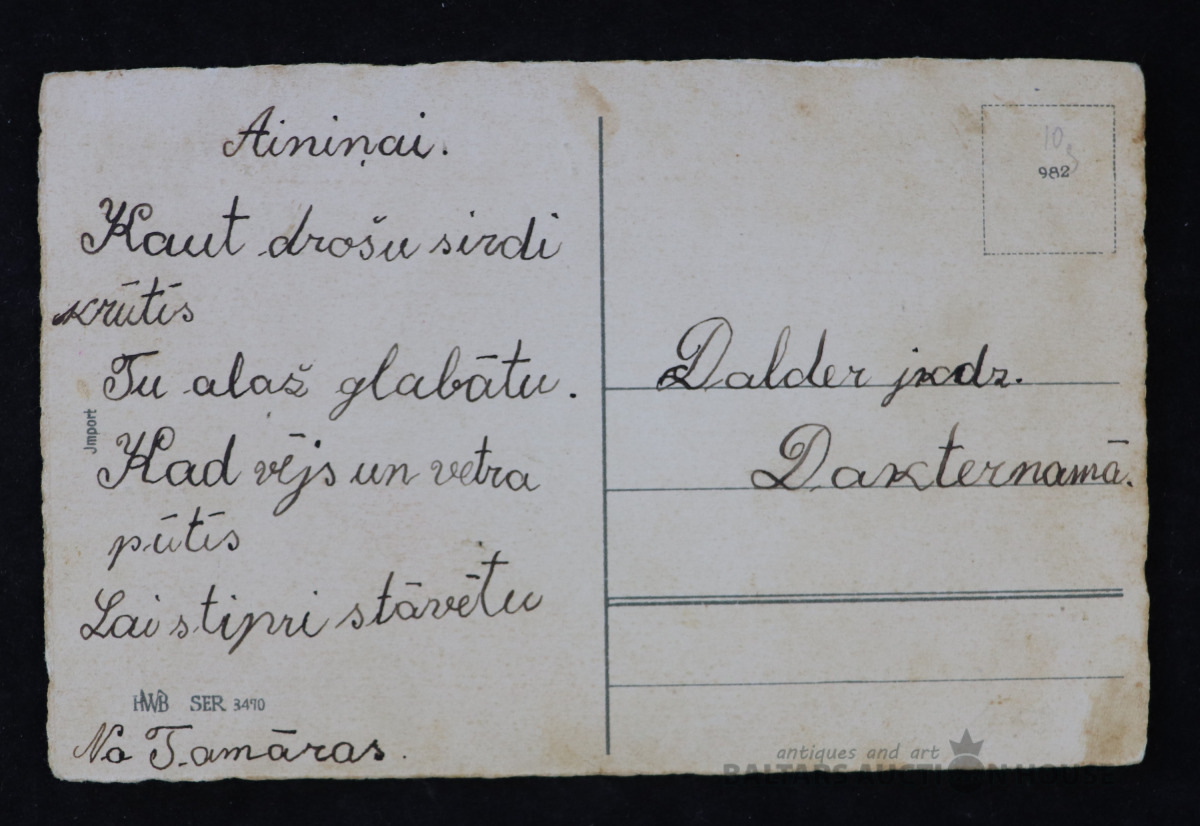 Aininai.
Kaut drošu sirdi
krūtīs
Tu alaž glabātu.
Kad vējs un vetra
pūtīs
Lai stipri stāvētu
HWB SER 3470
No Tamāras.
Jmport
10
982
Dalder jkdz.
Dakternamā.
antiques and art
BALTARS AUCTION HOUSE